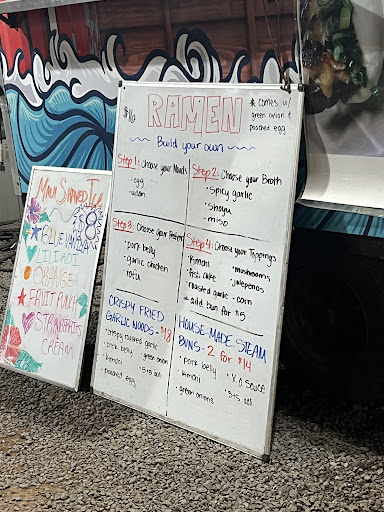 Maui Shaved Ice
$8
BLUE VANILLA
LILIKOI
ORANGE
FRUIT PUNCH
STRAWBERRIES
CREAM
$16
RAMEN
* comes w/
green onion &
poached egg
Build your own
Step 1: Choose your Noods
• egg
• udon
Step 2: Choose your Broth
• Spicy garlic
• Shoyu
• miso
Step 3: Choose your Protein
• pork belly
• garlic chicken
• tofu
Step 4: Choose your Toppings
• Kimchi
• fish cake
• roasted garlic
• mushrooms
• jalepenos
• corn
* add bun for $5
CRISPY FRIED
GARLIC NOODS - $18
• crispy roasted garlic
• pork belly
• kimchi
• green onion
• poached egg
HOUSE MADE STEAM
BUNS · 2 for $14
• pork belly
• kimchi
• green onions
• X.O SAUCE